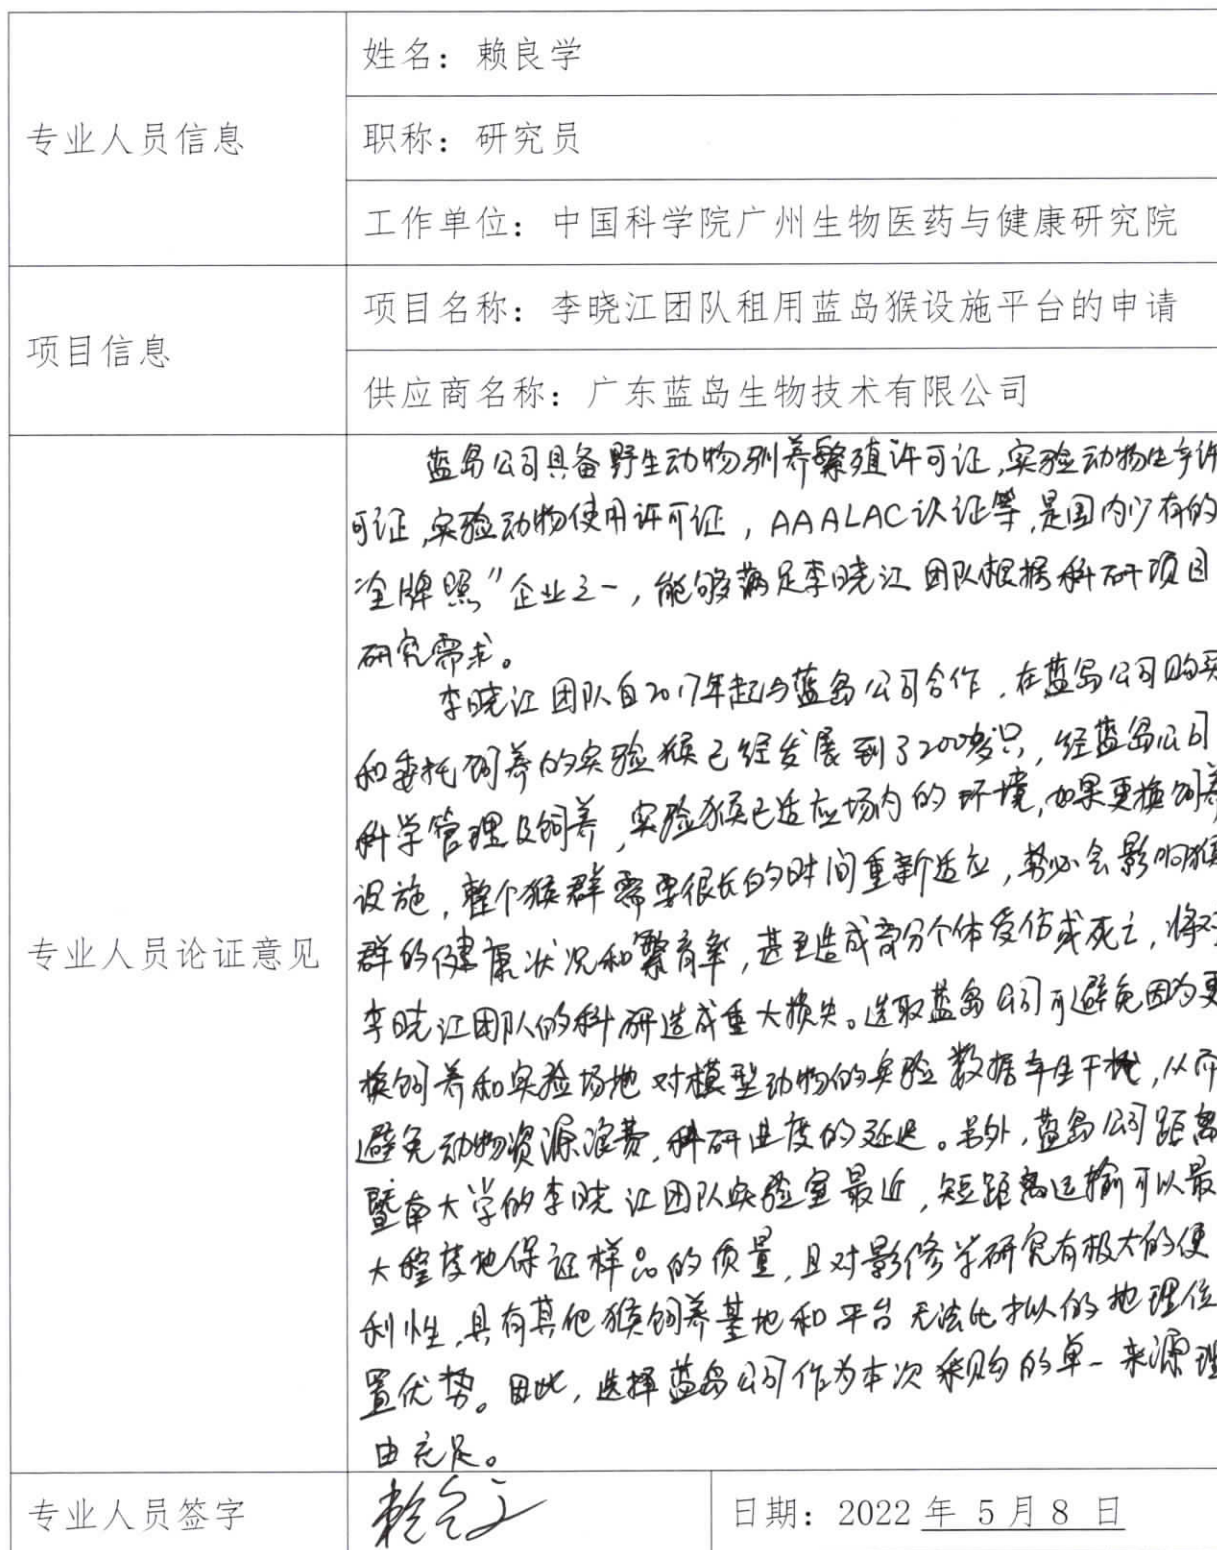 专业人员信息
姓名：赖良学
职称：研究员
工作单位：中国科学院广州生物医药与健康研究院
项目信息
项目名称：李晓江团队租用蓝岛猴设施平台的申请
供应商名称：广东蓝岛生物技术有限公司
专业人员论证意见
蓝岛公司具备野生动物驯养繁殖许可证,实验动物生产许
可证,实验动物使用许可证，AAALAC认证等,是国内少有的
全牌照”企业之一，能够满足李晓江团队根据科研项目
研究需求。
李晓江团队自2017年起与蓝岛公司合作，在蓝岛公司购买
和委托饲养的实验猴已经发展到了200多只，经蓝岛公司
科学管理及饲养，实验猴已适应场内的环境,如果更换饲养
设施，整个猴群需要很长的时间重新适应，势必会影响猴
群的健康状况和繁育率，甚至造成部分个体受伤或死亡，将对
李晓江团队的科研造成重大损失。选取蓝岛公司可避免因为更
换饲养和实验场地对模型动物的实验数据产生干扰，从而
避免动物资源浪费,科研进度的延迟。另外，蓝岛公司距离
暨南大学的李晓江团队实验室最近，短距离运输可以最
大程度地保证样品的质量，且对影像学研究有极大的便
利性,具有其他猴饲养基地和平台无法比拟的地理位
置优势。因此，选择蓝岛公司作为本次采购的单一来源理
由充足。
专业人员签字
日期：2022 年 5 月 8 日